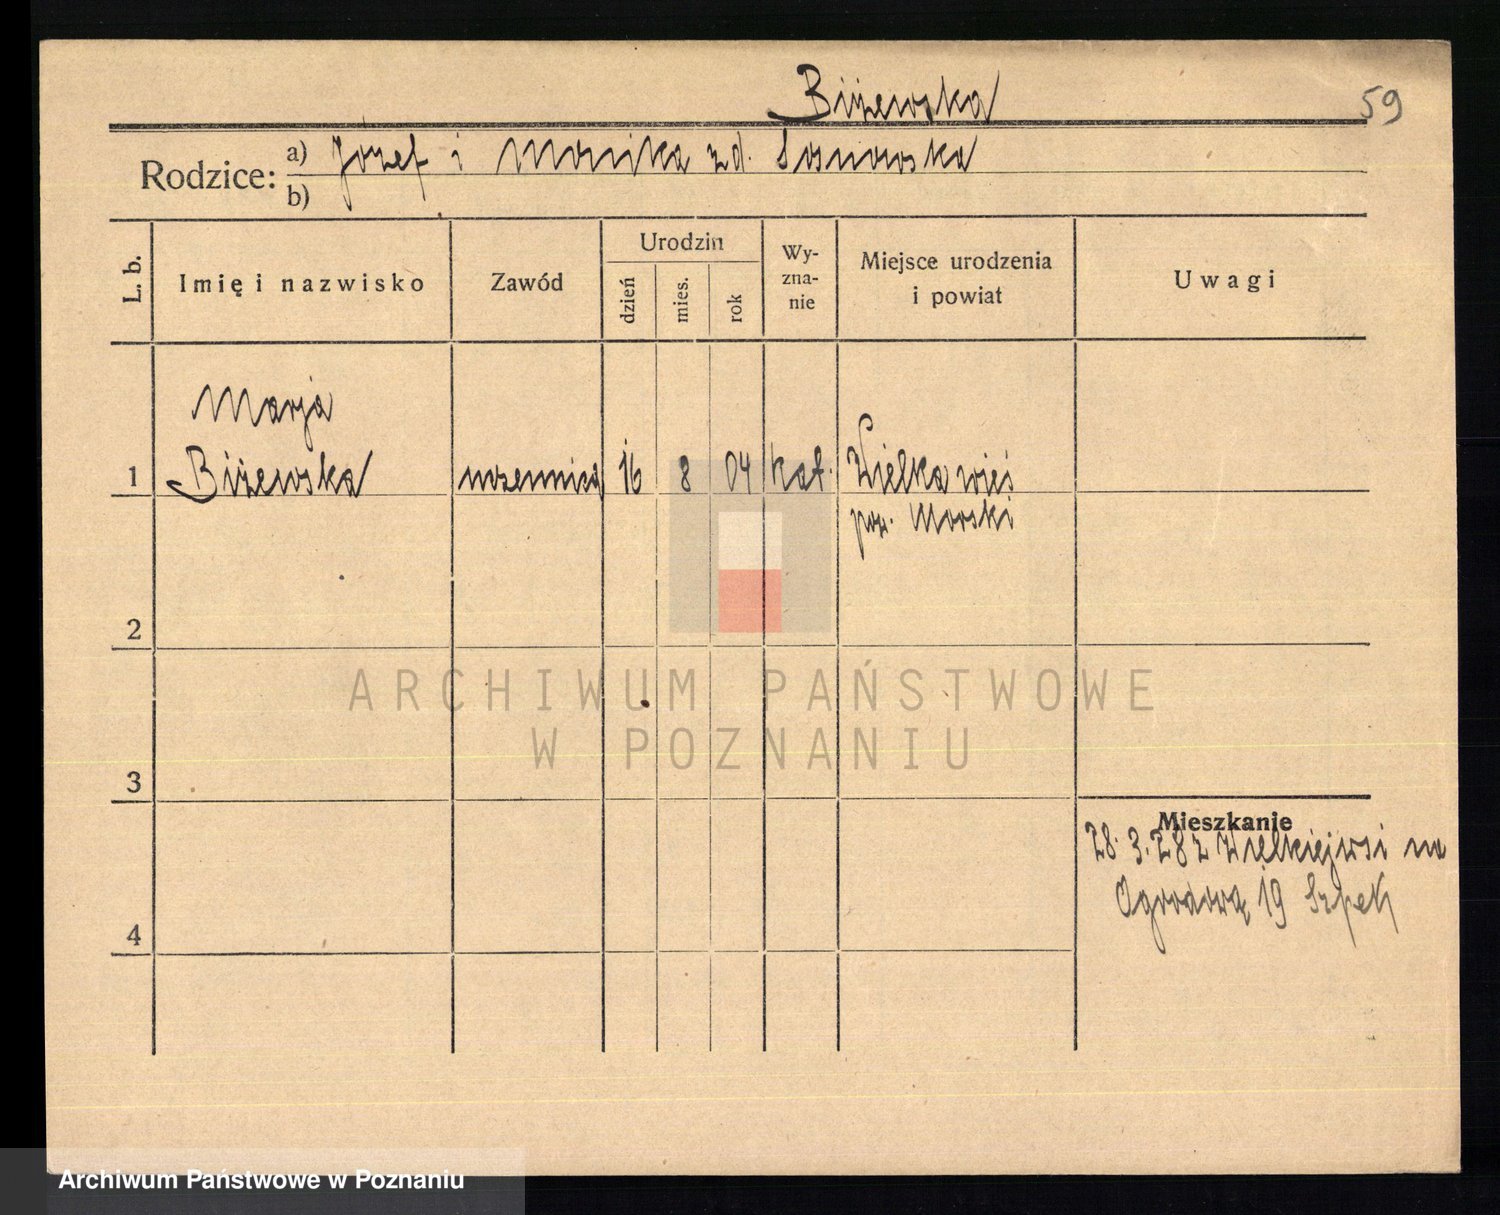 Biżewska
59
Rodzice: a) Józef i Monika zd. Sosnowska
b)
L. b.
Imię i nazwisko
Zawód
Urodzin
dzień
mies.
rok
Wy-
zna-
nie
Miejsce urodzenia
i powiat
Uwagi
Marja
1 Biżewska uczennica 16 8 04 kat. Wielka wieś
pow. Morski
2
ARCHIWUM PAŃSTWOWE
W POZNANIU
3
Mieszkanie
28. 3. 28 z Wielkiejwsi na
Ogrodową 19
4
Archiwum Państwowe w Poznaniu